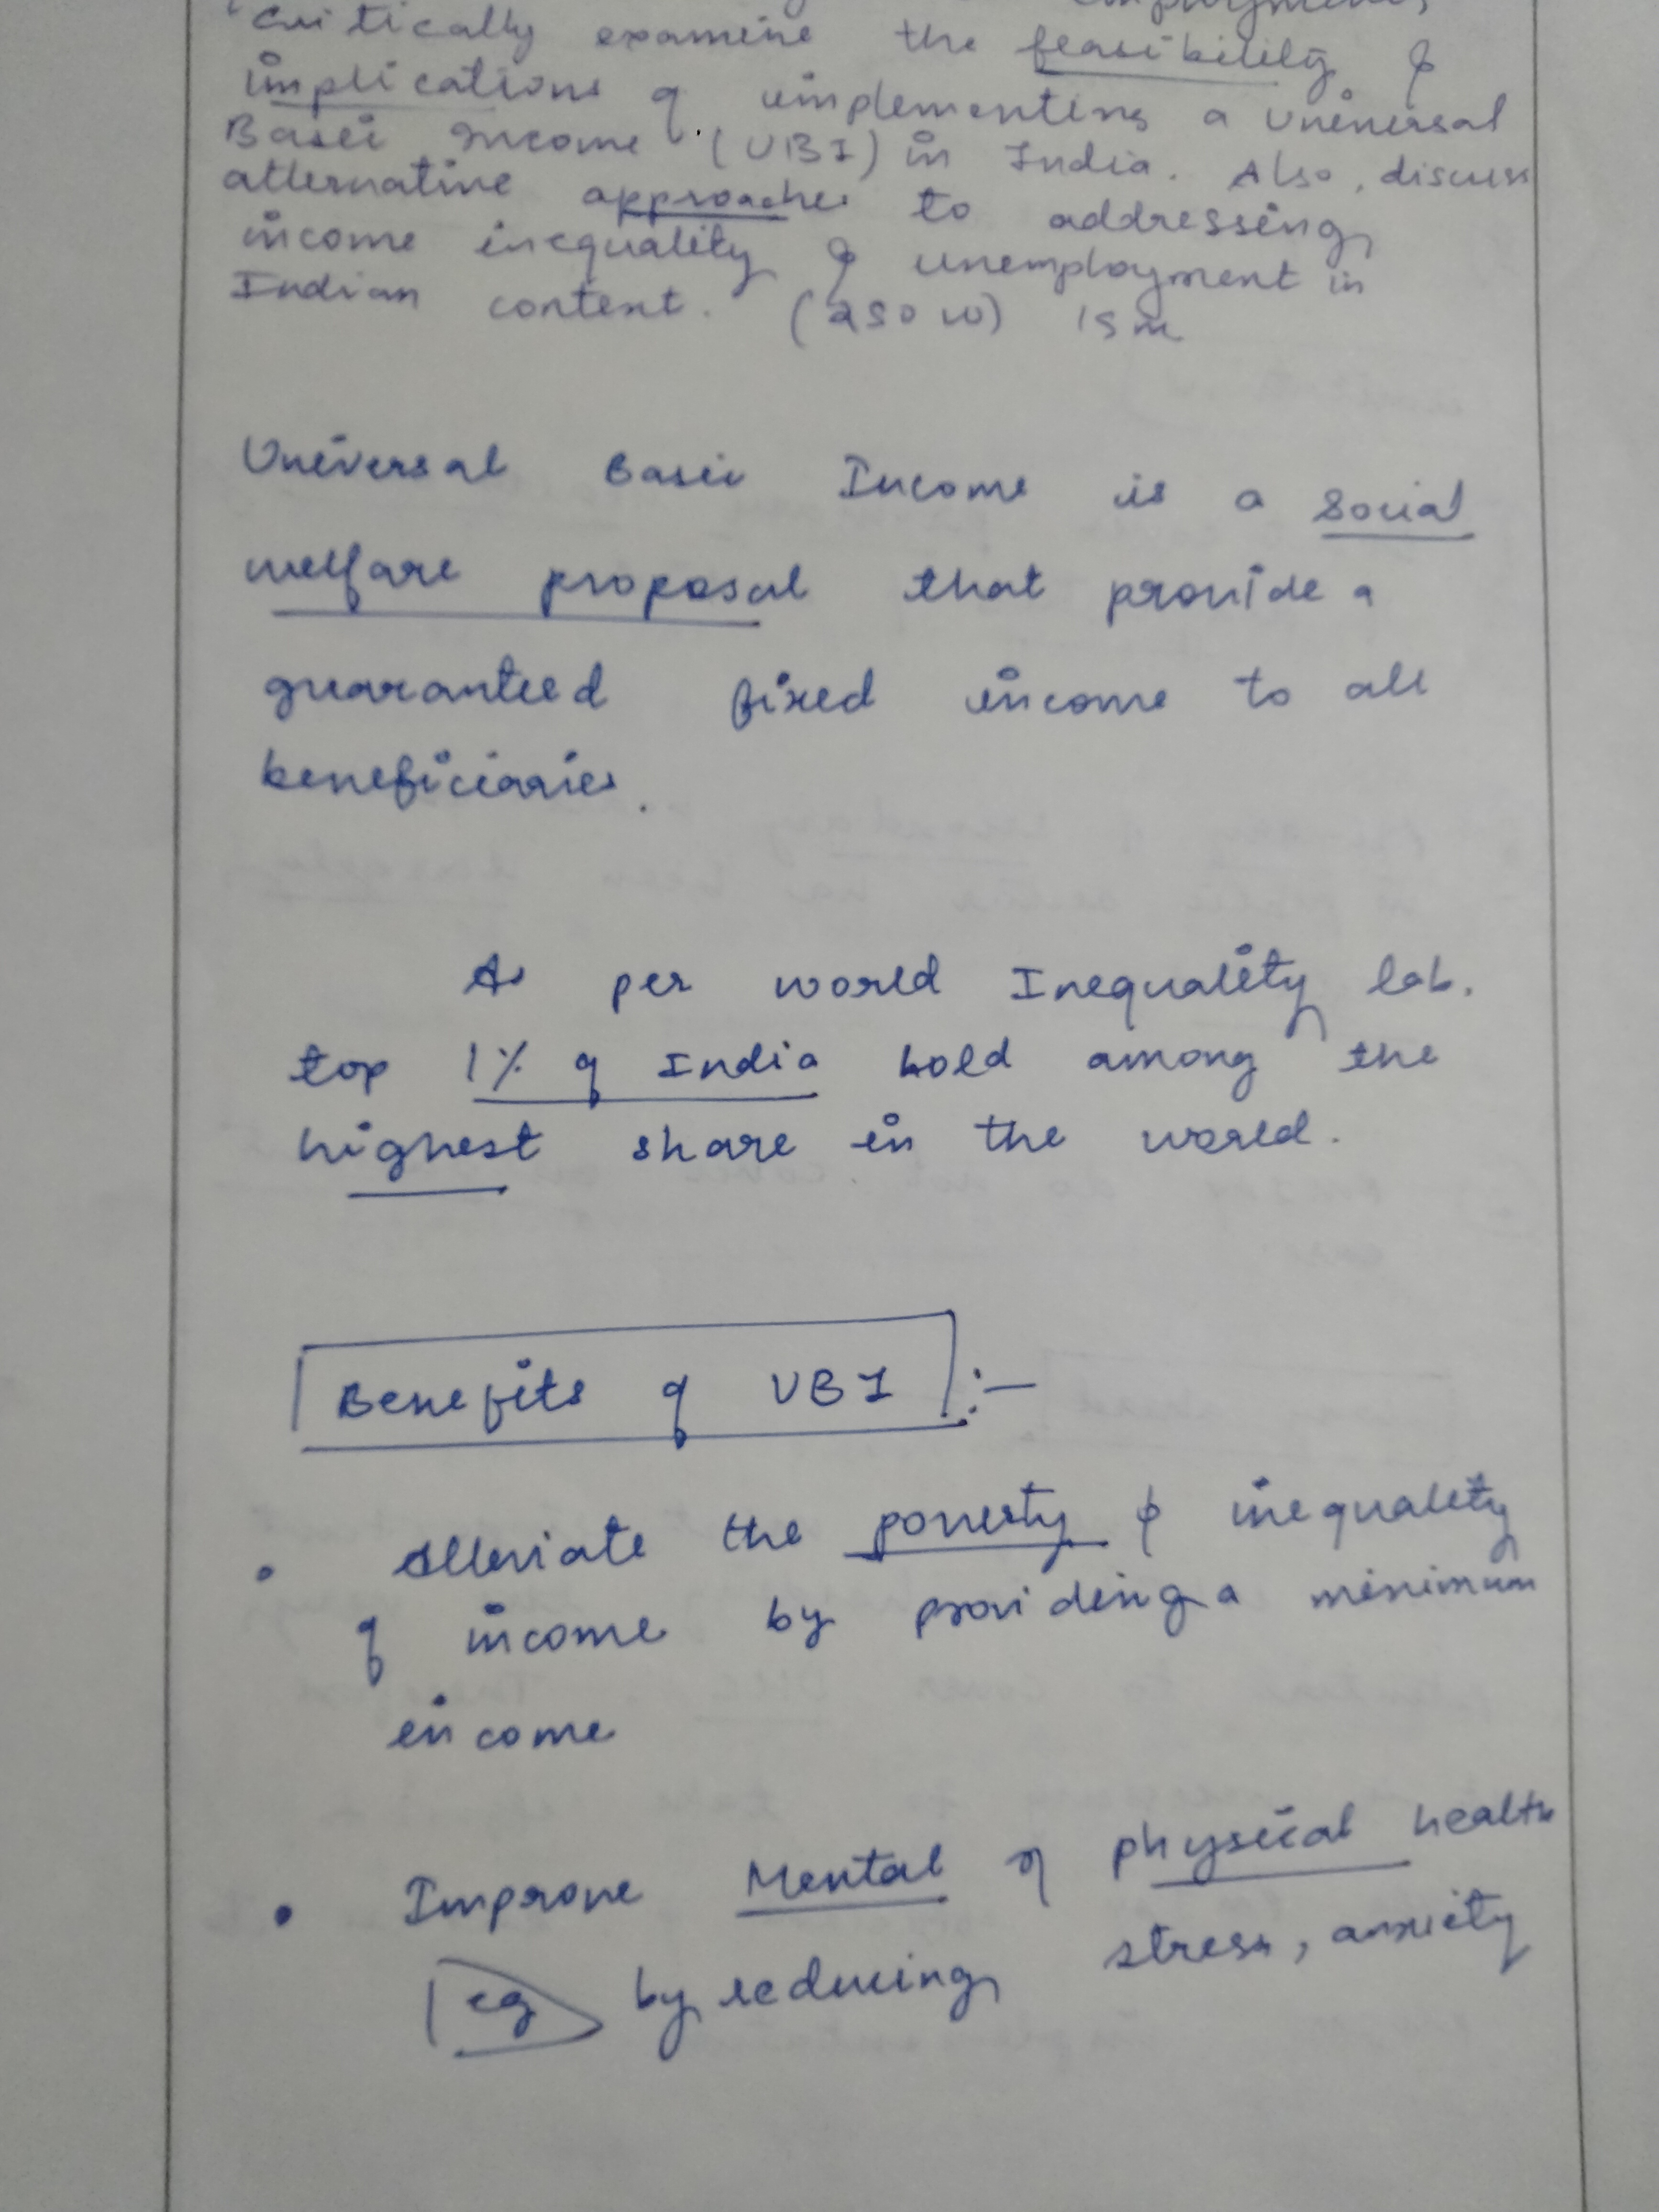 critically examine the feasibility &
implications of implementing a Universal
Basic Income (UBI) in India. Also, discuss
alternative approaches to addressing
income inequality & unemployment in
Indian context. (250 W) 15 m
Universal Basic Income is a social
welfare proposal that provide a
guaranteed fixed income to all
beneficiaries.
As per world Inequality lab.
top 1% of India hold among the
highest share in the world.
Benefits of UBI :-
• Alleviate the poverty & inequality
of income by providing a minimum
income
• Improve Mental & physical health
eg by reducing stress, anxiety